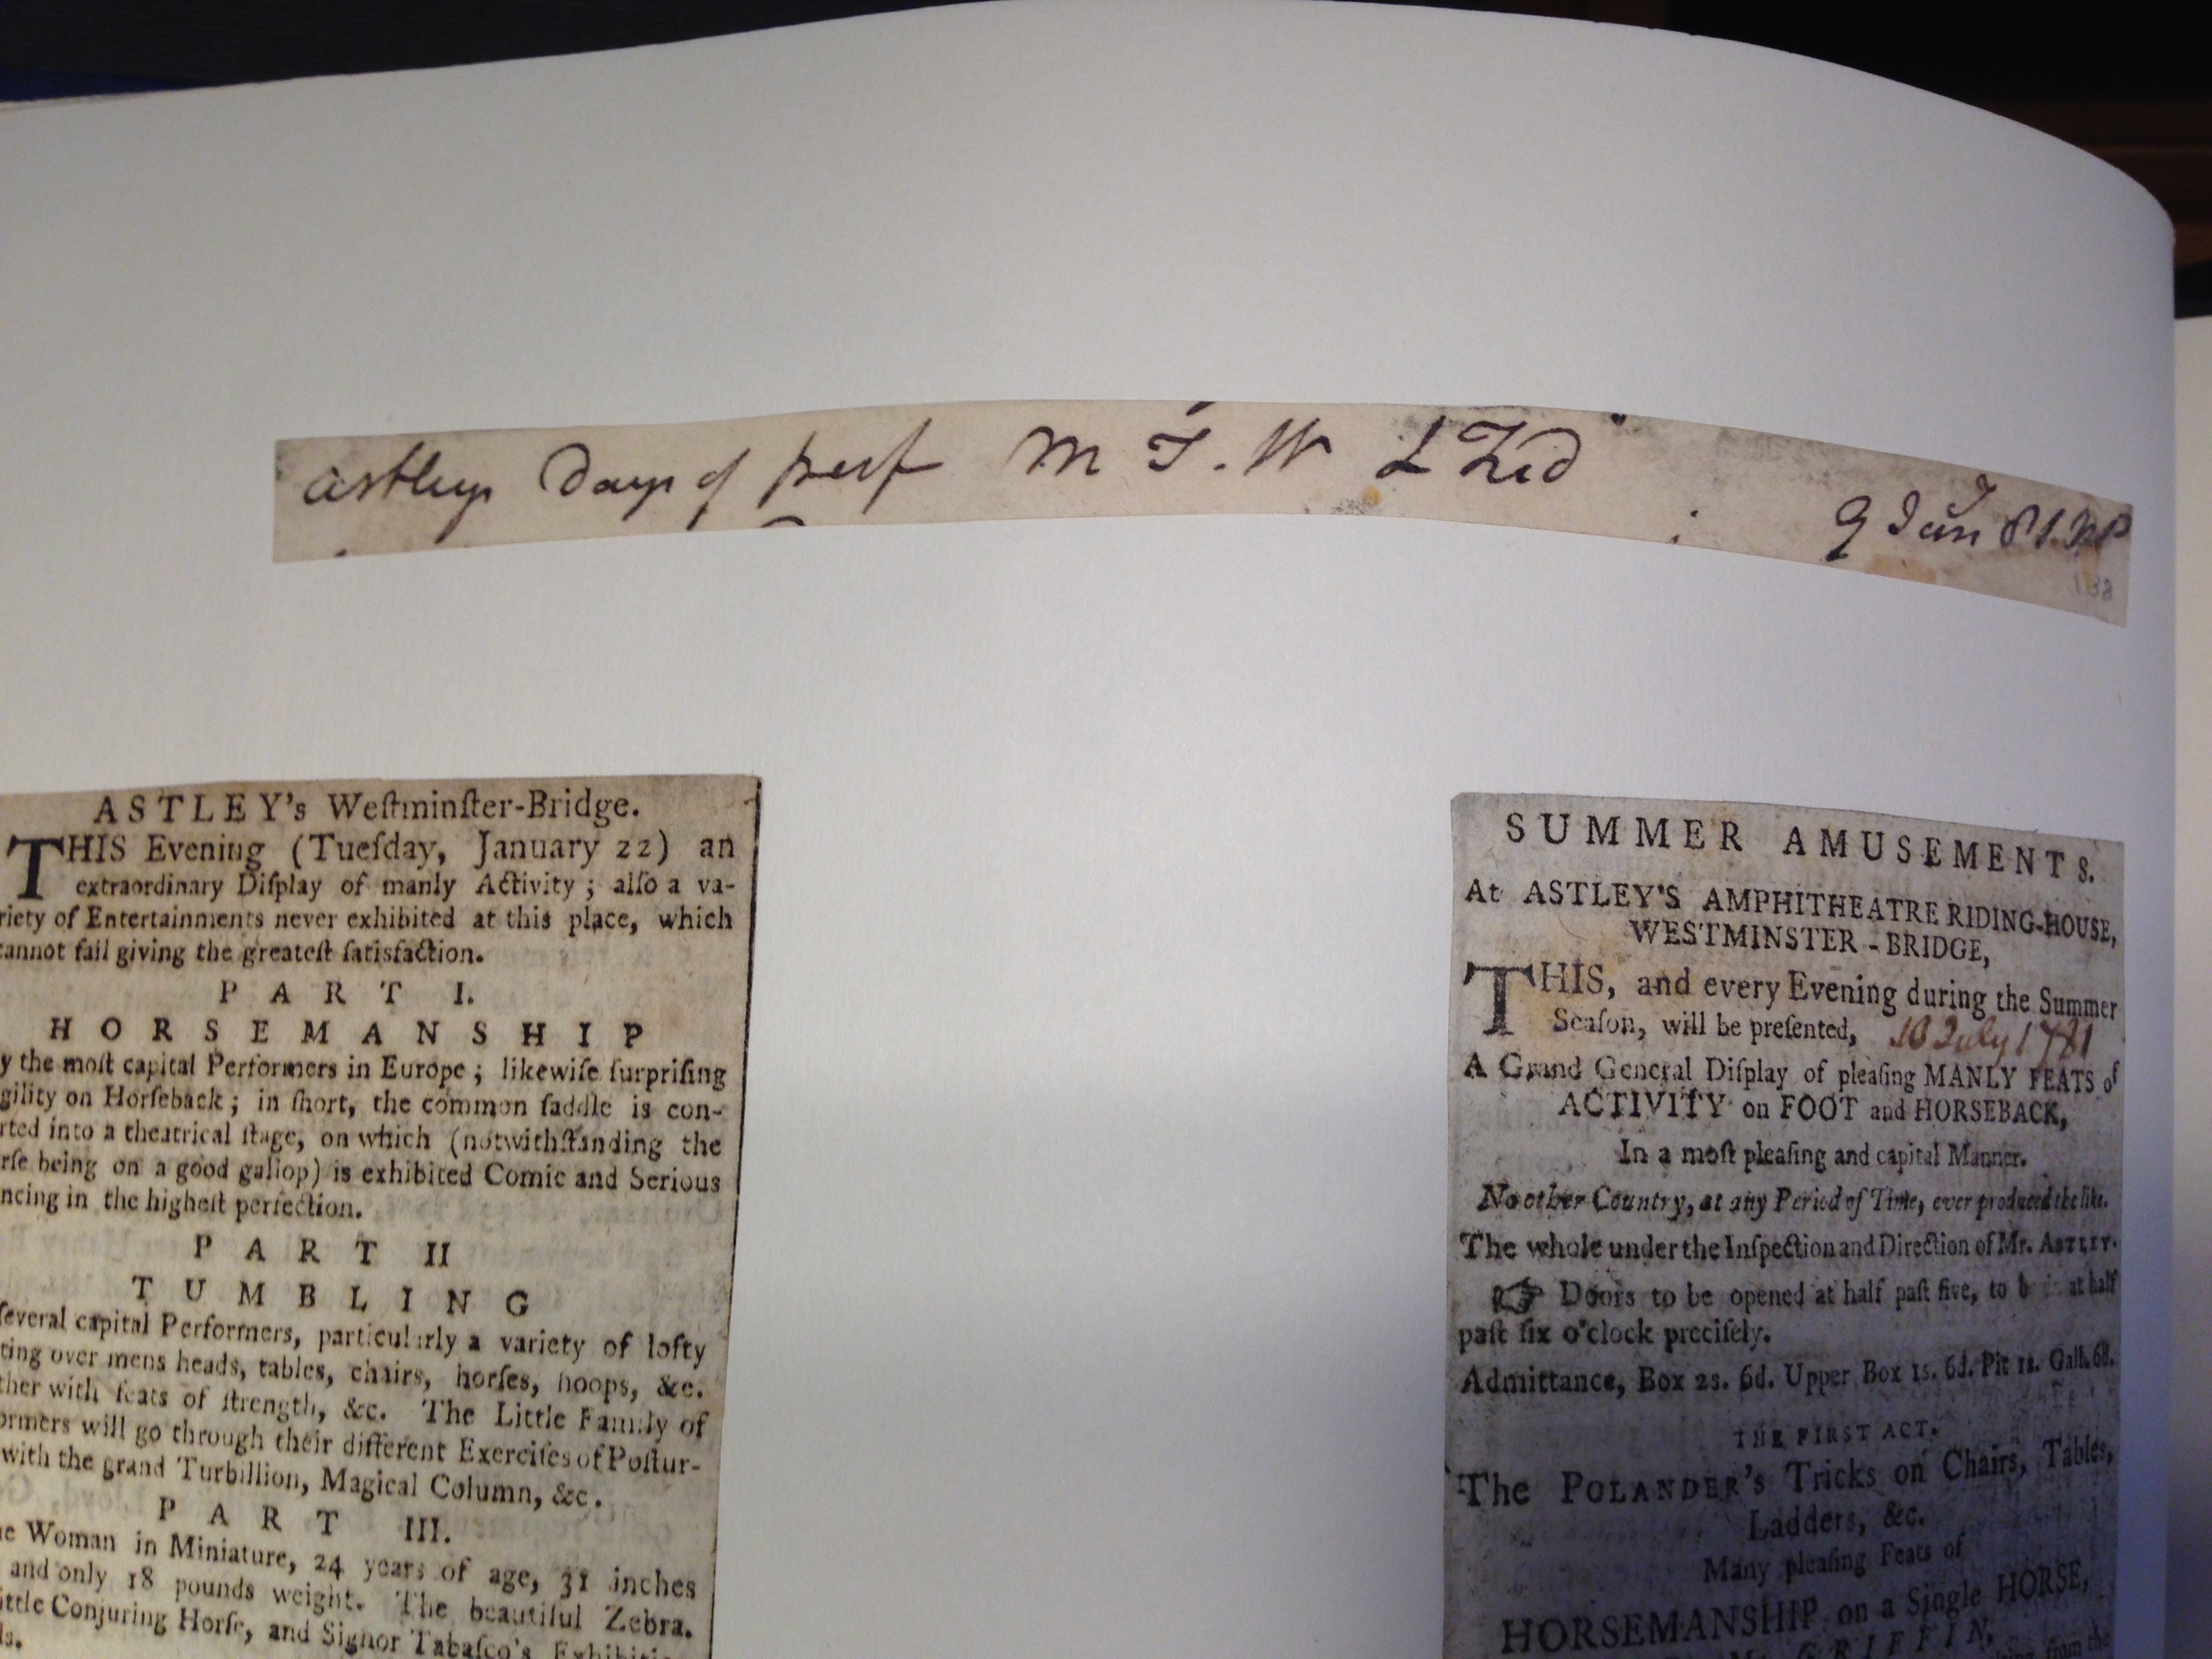 astleys Days of perf M T. W
9 Jan 81.
138
ASTLEY's Weſtminſter-Bridge.
THIS Evening (Tueſday, January 22) an
extraordinary Diſplay of manly Activity; alſo a va-
riety of Entertainments never exhibited at this place, which
cannot fail giving the greateſt ſatisfaction.
PART I.
HORSEMANSHIP
y the moſt capital Performers in Europe; likewiſe ſurpriſing
gility on Horſeback; in ſhort, the common ſaddle is con-
rted into a theatrical ſtage, on which (notwithſtanding the
rſe being on a good gallop) is exhibited Comic and Serious
ncing in the higheſt perfection.
PART II
TUMBLING
ſeveral capital Performers, particularly a variety of lofty
ting over mens heads, tables, chairs, horſes, hoops, &c.
ther with feats of ſtrength, &c. The Little Family of
ormers will go through their different Exerciſes of Poſtur-
with the grand Turbillion, Magical Column, &c.
PART III.
ne Woman in Miniature, 24 years of age, 31 inches
and only 18 pounds weight. The beautiful Zebra.
ittle Conjuring Horſe, and Signor Tabaſco's
ls.
SUMMER AMUSEMENTS.
At ASTLEY'S AMPHITHEATRE RIDING-HOUSE,
WESTMINSTER-BRIDGE,
THIS, and every Evening during the Summer
Seaſon, will be preſented, July 1781
A Grand General Diſplay of pleaſing MANLY FEATS of
ACTIVITY on FOOT and HORSEBACK,
In a moſt pleaſing and capital Manner.
No other Country, at any Period of Time, ever produced the like.
The whole under the Inſpection and Direction of Mr. ASTLEY.
☞ Doors to be opened at half paſt five, to at half
paſt ſix o'clock preciſely.
Admittance, Box 2s. 6d. Upper Box 1s. 6d. Pit 1s. Gall. 6d.
THE FIRST ACT.
The POLANDER's Tricks on Chairs, Tables,
Ladders, &c.
Many pleaſing Feats of
HORSEMANSHIP on a Single HORSE,
GRIFFIN,
from the